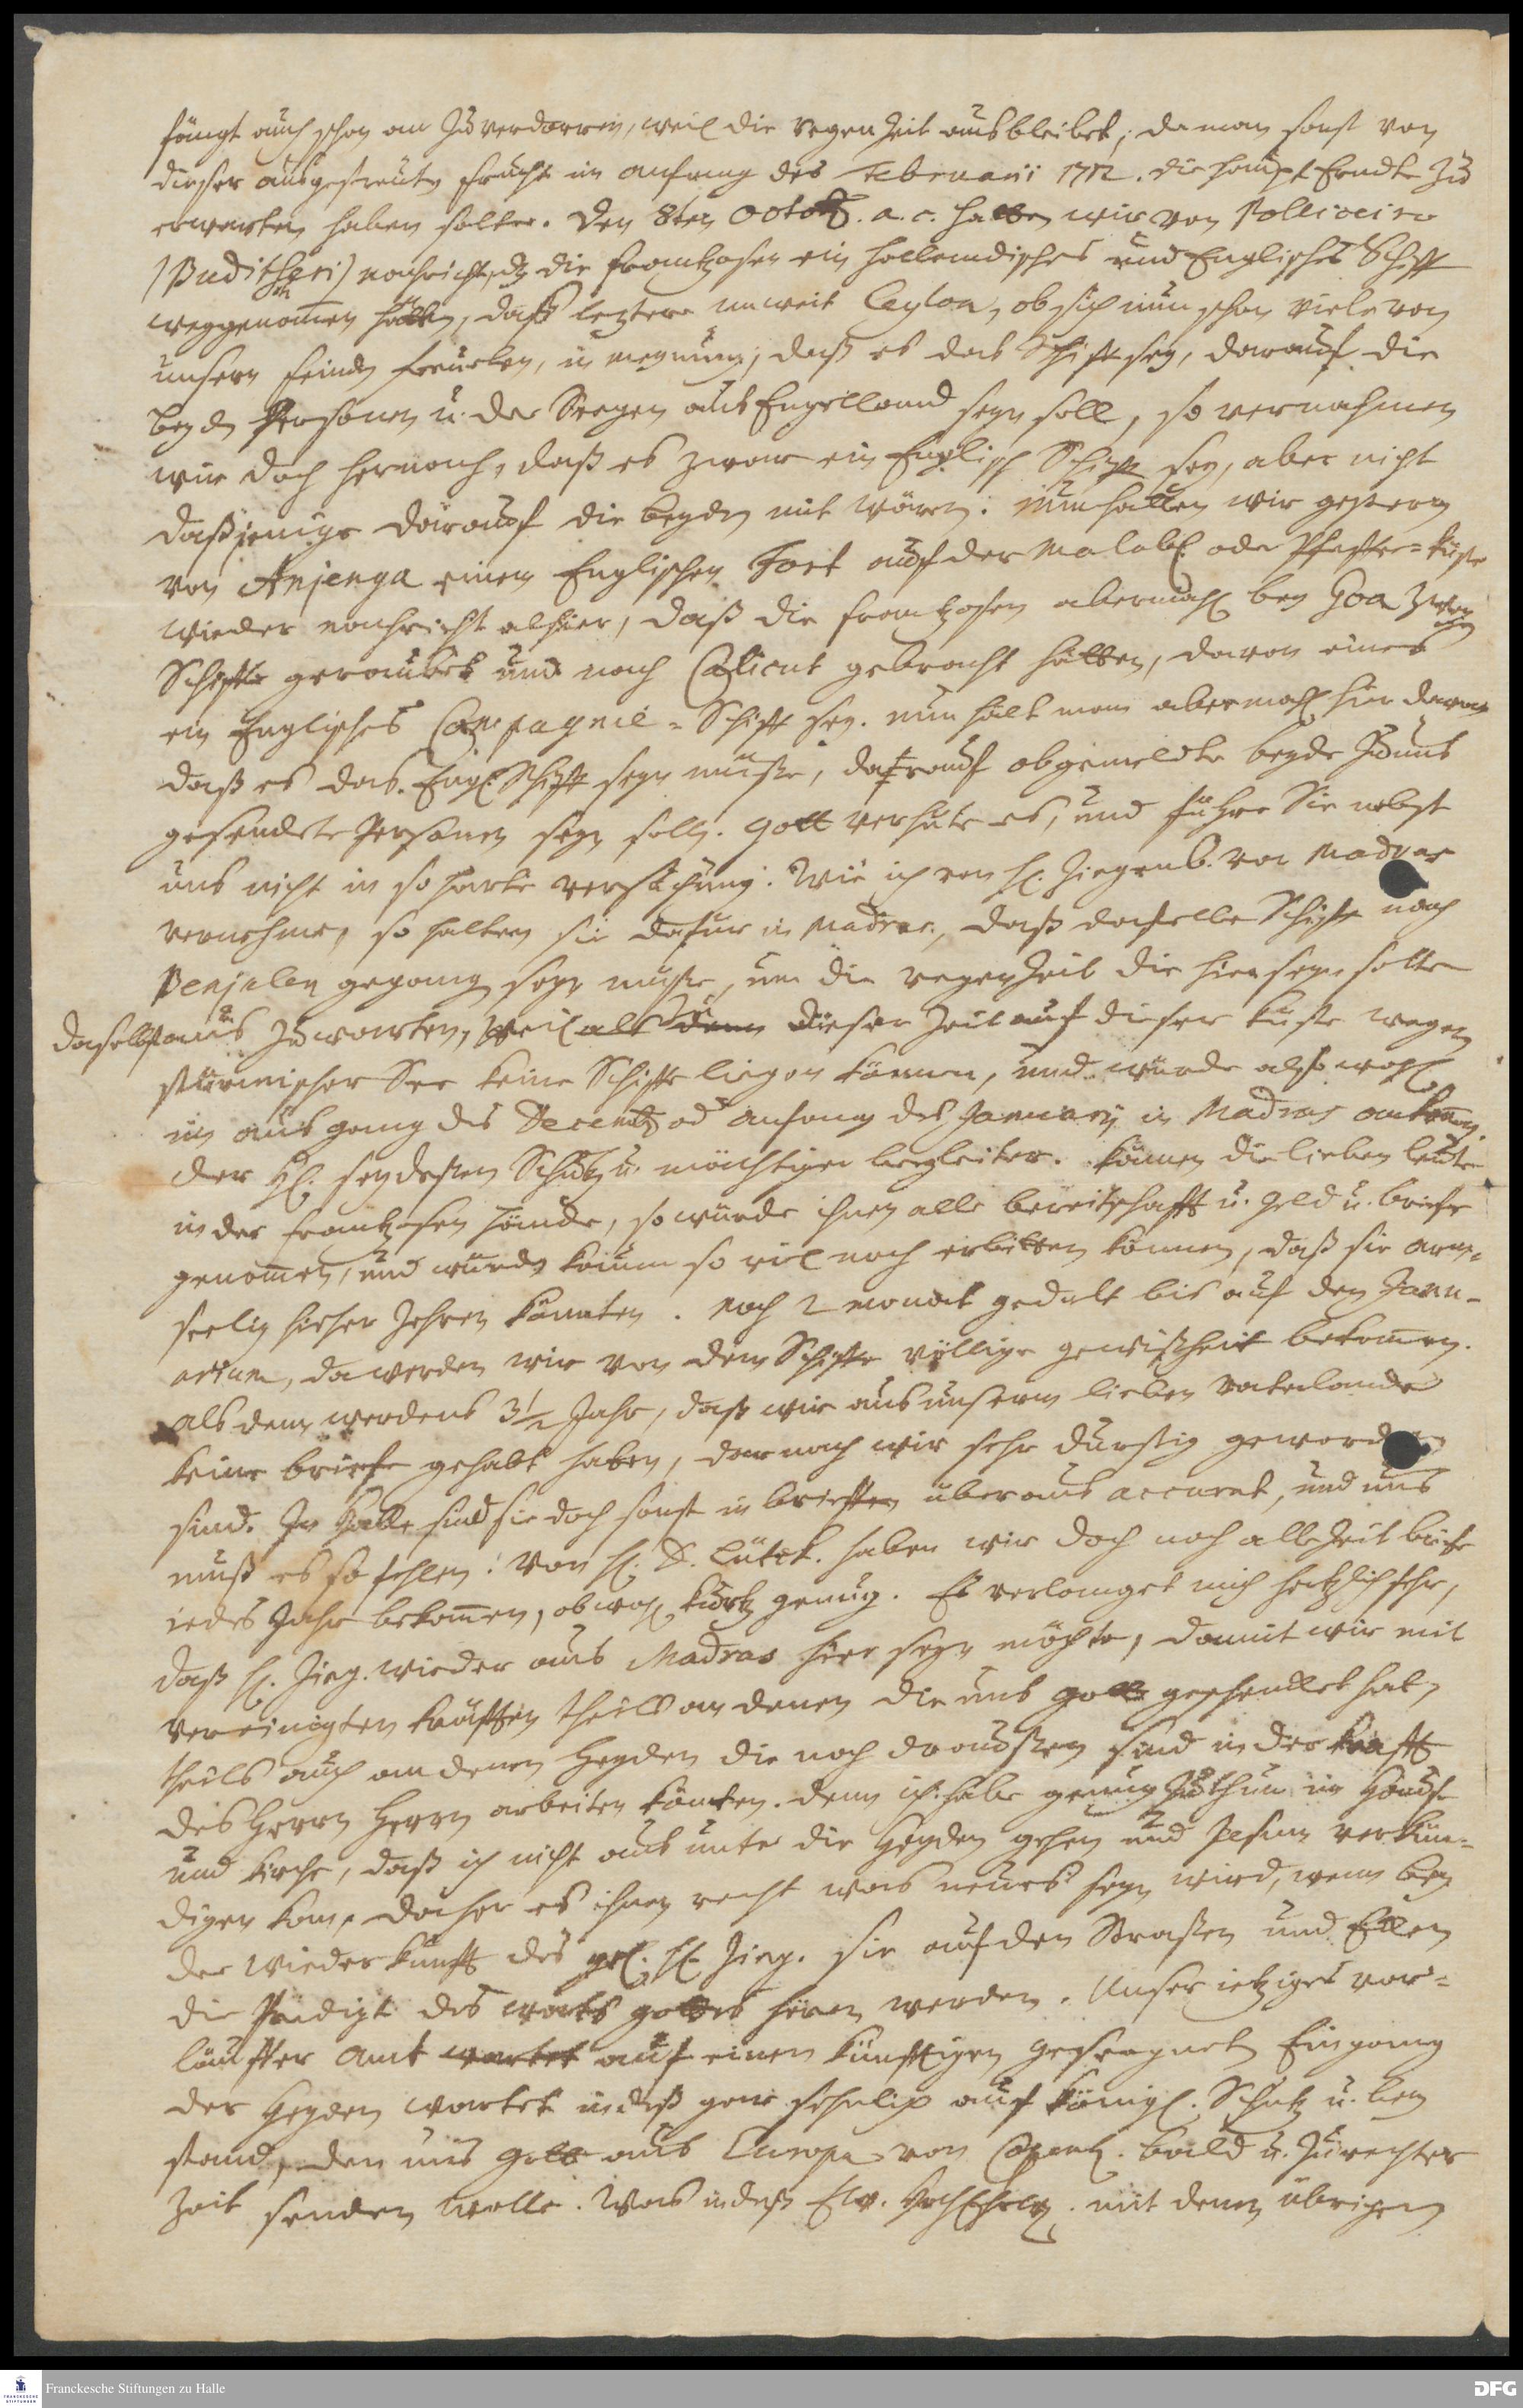 fängt auch schon an zu verdorren, weil die regen Zeit ausbleibet, da man sonst von
dieser ausgestreuten frucht im anfang des Februarii 1712. die haupt Erndte zu
erwarten haben solte. Den 8ten Octobr. a. c. hatten wir von
(Puditscheri) nachricht, dz die frantzosen ein hollendisches und Englisches Schiff
weggenommen hätten, daß letztere unweit Ceylon, ob sich nun schon viele von
unsern feinden freueten, in meynung, daß es das Schiff sey, darauf die
beyden Personen u. der Seegen aus Engelland seyn soll, so vernahmen
wir doch hernach, daß es zwar ein Englisch Schiff sey, aber nicht
daßjenige darauf die beyden mit wären. Nun hatten wir gestern
von Anjenga einem Englischen Fort auf der Malab. oder Pfeffer-Küste
wieder nachricht alhier, daß die frantzosen abermahl bey Goa zwey
Schiffe geraubet und nach Calicut gebracht hätten, davon eines
ein Englisches Compagnie-Schiff sey. nun hält man abermahl hier davor
daß es das Engl. Schiff seyn müste, darauf obgemeldte beyde zu uns
gesendete Personen seyn solln. Gott verhüte es, und führe Sie nebst
uns nicht in so harte versuchung. Wie ich von H. Ziegenb. von Madras
vernehme, so halten sie dafür in Madras, daß dasselbe Schiff nach
Benjalen gegang seyn müste, um die regenzeit die hier seyn solte
daselbst aus zu warten, weil als denn dieser Zeit auf dieser Küste wegen
stürmischer See keine Schiffe liegen können, und würde also wohl
im ausgang des Decemb. od anfang des Januarij in Madras ankommen.
der H. sey dessen Schutz u. mächtiger begleiter. Kämen die lieben leute
in der frantzosen hände, so würde ihnen alle bereitschafft u. geld u. briefe
genommen, und würden kaum so viel noch erbitten können, daß sie arm-
seelig hieher zehren könten. noch 2 monat gedult bis auf den Janu-
arium, da werden wir von dem Schiffe völlige gewißheit bekommen.
als denn werdens 3 1/2 Jahr, daß wir aus unserm lieben vaterlande
keine briefe gehabt haben, darnach wir sehr durstig geworden
sind. In Halle sind sie doch sonst in brieffen überaus accurat, und uns
muß es so fehlen. Von H. D. Lütk. haben wir doch noch alle Zeit briefe
iedes Jahr bekommen, obwohl kurtz genug. Es verlanget mich hertzlich sehr,
daß H. Zieg. wieder aus Madras hier seyn möchte, damit wir mit
vereinigten kräfften theils an denen die uns Gott geschencket hat,
theils auch an denen Heyden die noch draussen sind in der krafft
des Herrn Herrn arbeiten könten. denn ich habe genug zu thun im Hause
und Kirche, daß ich nicht aus unter die Heyden gehen und Jesum verkün-
digen kan, daher es ihnen recht was neues seyn wird, wenn bey
der wiederkunfft des gel. H. Zieg. sie auf den Strassen und Ecken
die Predigt des worts gottes hören werden. Unser ietziges vor-
läuffer Amt wartet auf einen künfftigen gesegneten Eingang
der Heyden wartet indeß gar sehnlich auf Königl. Schutz u. bey
stand, den uns Gott aus Europa von Copenh. bald u. zu rechter
Zeit senden wolle. Was indeß Ew. HochEhrw. mit denen übrigen
Franckesche Stiftungen zu Halle
DFG